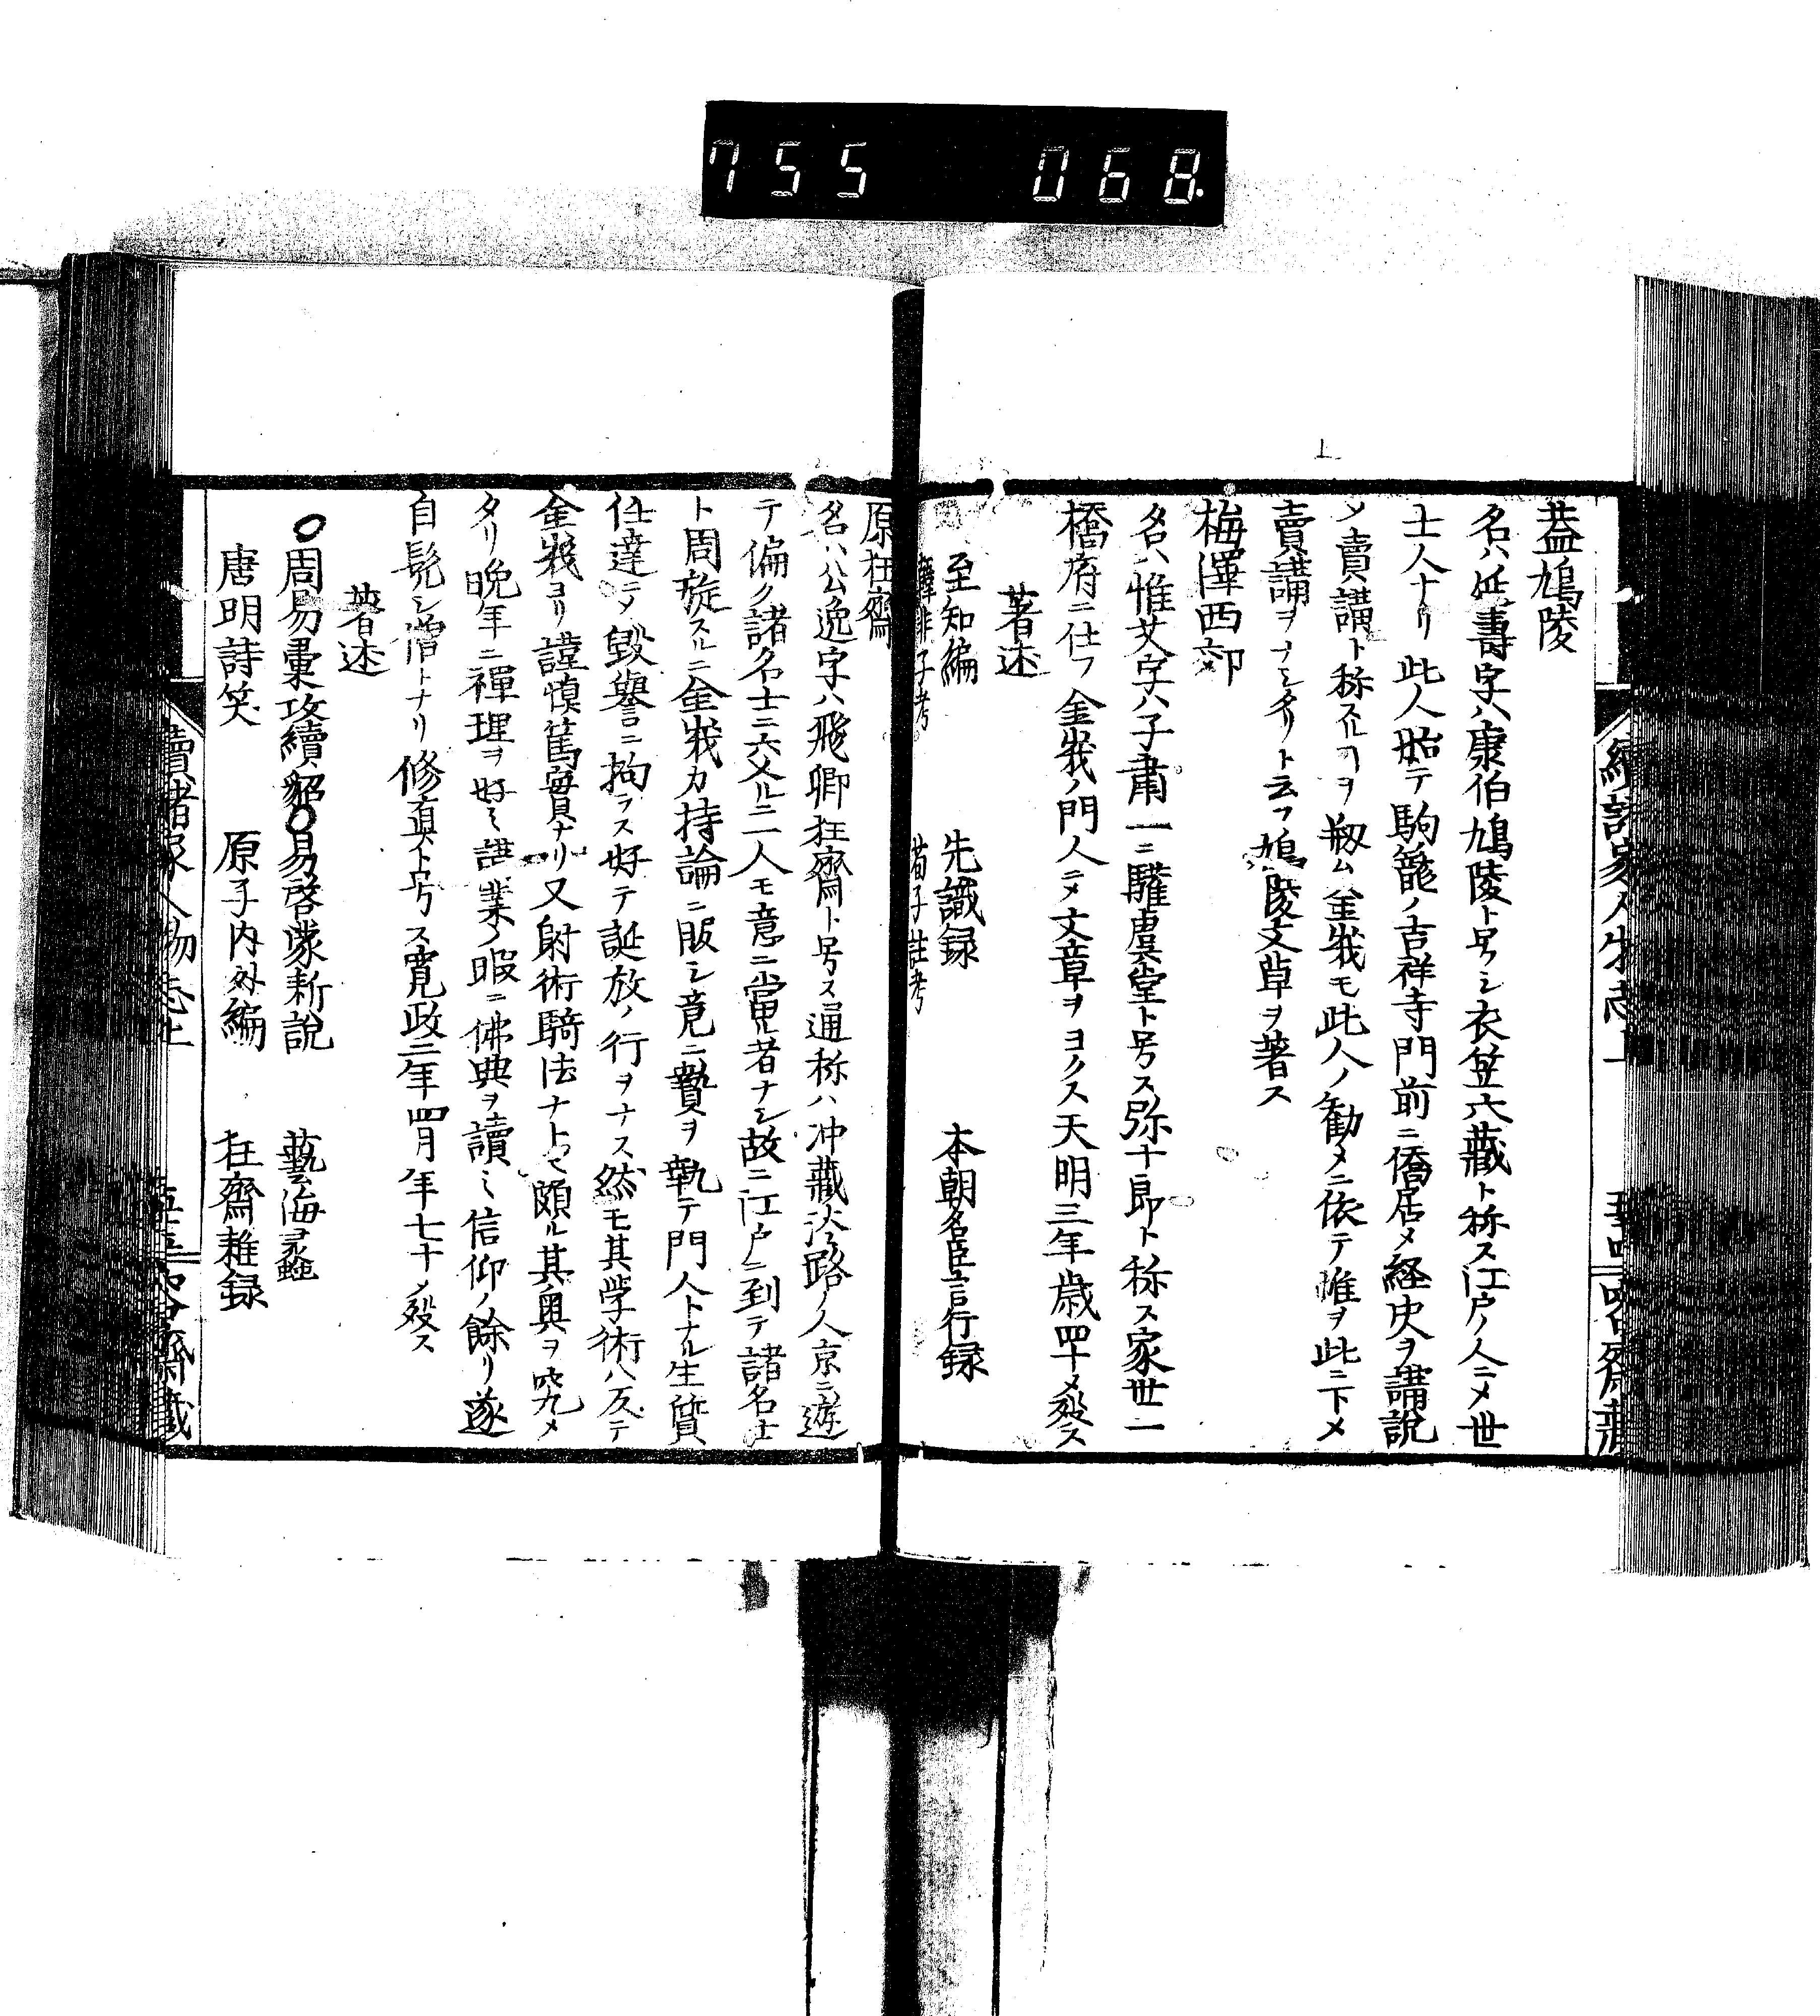 755 068
續諸家人物志上
葢鳩陵
名ハ延壽字ハ康伯鳩陵ト号シ衣笠六藏ト称ス江戸ノ人ニメ世
士人ナリ此人始テ駒籠ノ吉祥寺門前ニ僑居メ経史ヲ講説
メ賣講ト称スルヿヲ剏ム金峩モ此人ノ勧メニ依テ帷ヲ此ニ下メ
賣講ヲナシタリト云フ鳩陵文草ヲ著ス
梅澤西郊
名ハ惟艾字ハ子肅一ニ騹虞堂ト号ス弥十郎ト称ス家世一
橋府ニ仕フ金峩ノ門人ニメ文章ヲヨクス天明三年歳四十メ殁ス
著述
至知編 先識録 本朝名臣言行録
韓非子考 荀子註考
原狂齋
名ハ公逸字ハ飛卿狂齋ト号ス通称ハ冲藏淡路ノ人京ニ遊
テ偏ク諸名士ニ交ルニ一人モ意ニ當ル者ナシ故ニ江戸ニ到テ諸名士
ト周旋スルニ金峩カ持論ニ服シ竟ニ贄ヲ執テ門人トナル生質
任達ニメ毀譽ニ拘ラス好テ誕放ノ行ヲナス然モ其学術ハ反テ
金峩ヨリ謹慎篤實ナリ又射術騎法ナト頗ル其奥ヲ究メ
タリ晩年ニ禪理ヲ好ミ講業ノ暇ニ佛典ヲ讀ミ信仰ノ餘リ遂
自髡シ僧トナリ修真ト号ス寛政二年四月年七十メ殁ス
著述
○周易彙攷續貂○易啓蒙新說 藝海蠡
唐明詩笑 原子内外編 狂齋雜録
續諸家人物志上